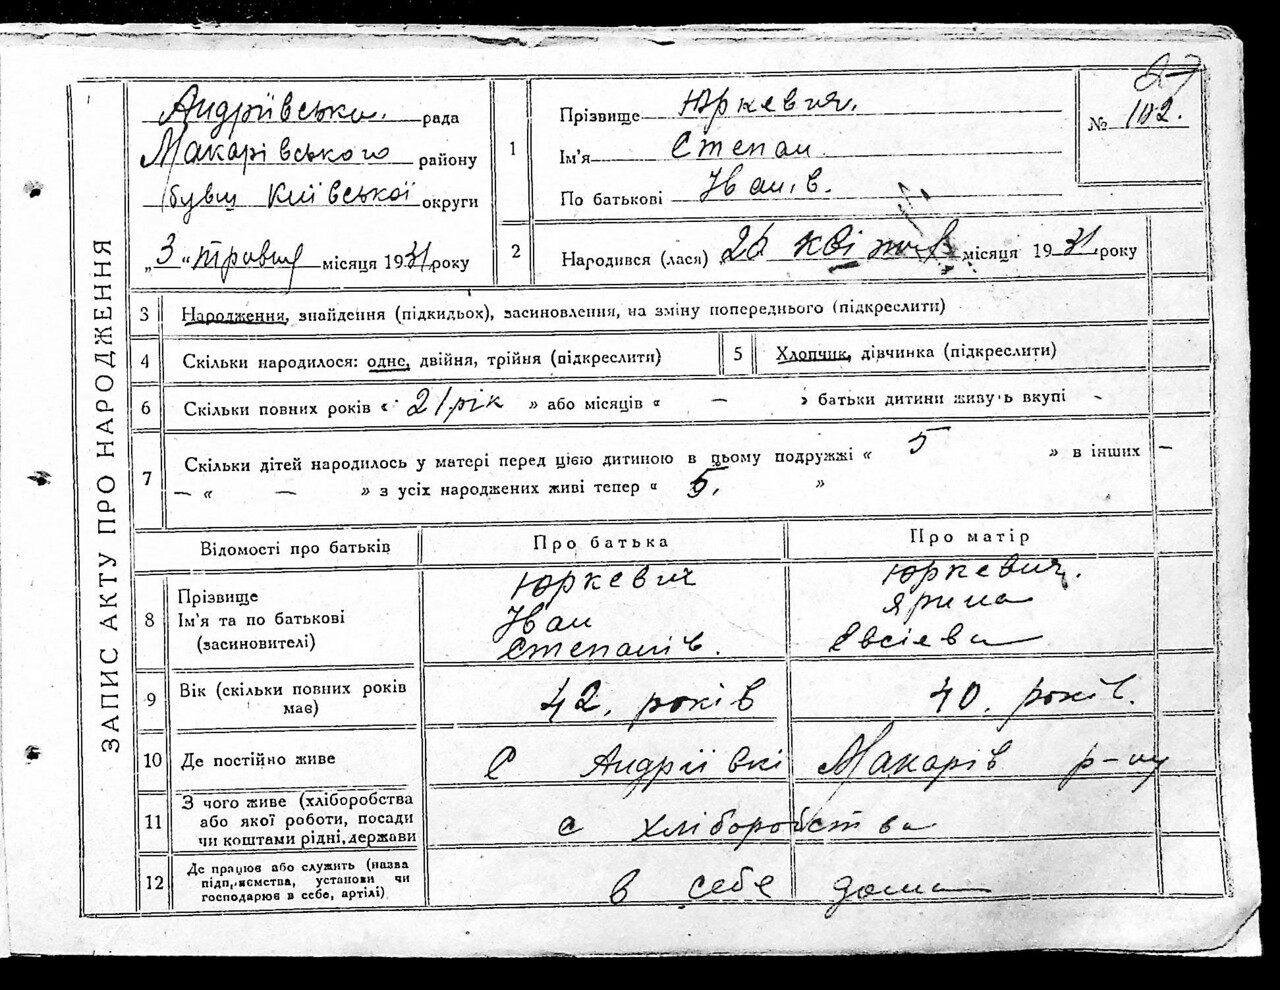 ЗАПИС АКТУ ПРО НАРОДЖЕННЯ
27
Андріївська рада
Макарівського району
бувш Київської округи
„3“ травня місяця 1931 року
1 Прізвище Юркевич.
Ім'я Степан
По батькові Іванів.
№ 102.
2 Народився (лася) 26 квітня місяця 1931 року
3 Народження, знайдення (підкидьох), засиновлення, на зміну попереднього (підкреслити)
4 Скільки народилося: одне, двійня, трійня (підкреслити)
5 Хлопчик, дівчинка (підкреслити)
6 Скільки повних років « 21 рік » або місяців « — » батьки дитини живуть вкупі -
7 Скільки дітей народилось у матері перед цією дитиною в цьому подружжі « 5 » в інших —
— « — » з усіх народжених живі тепер « 5. »
Відомості про батьків Про батька Про матір
8 Прізвище
Ім'я та по батькові
(засиновителі)
Юркевич
Іван
Степанів.
Юркевич.
Ярина
Євсієва
9 Вік (скільки повних років
має)
42. років
40. років.
10 Де постійно живе С Андріївкі Макарів р-ну
11 З чого живе (хліборобства
або якої роботи, посади
чи коштами рідні, держави
с хліборобства
12 Де працює або служить (назва
підприємства, установи чи
господарює в себе, артілі)
в себе дома